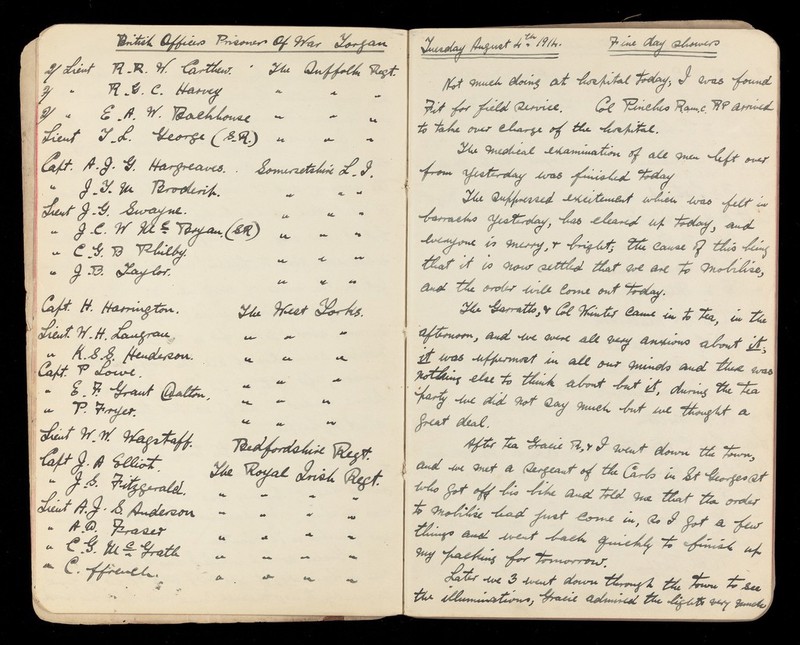 British Officers Prisoner Of War Torgau
2/ Lieut R. R. W. Carthew. " The Suffolk Regt.
2/ " R. G. C. Harvey " " "
2/ " E. A. W. Backhouse " " "
Lieut T. L. George (S.R.) " " "
Capt. A. J. G. Hargreaves. . Somersetshire L. I.
" J. T. M Broderip. " " "
Lieut J. G. Swayne. " " "
" J. C. W McBryan. (S.R) " " "
" C. G. B Philby. " " "
" J. B. Taylor. " " "
Capt. H. Harrington. The West Yorks.
Lieut. W. H. Langran " " "
" K. S. S. Henderson. " " "
Capt. P Lowe. " " "
" E. F. Grant Dalton. " " "
" P. Fryer. " " "
Lieut W. W. Wagstaff. Bedfordshire Regt.
Capt J. A Elliot. The Royal Irish Regt.
" J. S. Fitzgerald. " " " "
Lieut A. J. S. Anderson " " " "
" A. D. Fraser " " " "
" C. G. McGrath " " " "
" C. ffrench. " " " "
Tuesday August 4th 1914. Fine day showers
Not much doing at hospital today, I was found
Fit for field service. Col Pinches R.am.c. RP arrived
to take over charge of the hospital.
The medical examination of all men left over
from yesterday was finished today
The suppressed excitement which was felt in
barracks yesterday, has cleared up today, and
everyone is merry, & bright; the cause of this being
that it is now settled that we are to mobilise,
and the order will come out today.
The Garratts, & Col Winter came in to tea, in the
afternoon, and we were all very anxious about it;
it was uppermost in all our minds and there was
nothing else to think about but it, during the tea
party we did not say much but we thought a
great deal.
After tea Gracie R, & I went down the town,
and we met a sergeant of the Carbs in St Georges St
who got off his bike and told me that the order
to mobilise had just come in, so I got a few
things and went back quickly to finish up
my packing for tomorrow.
Later we 3 went down through the town to see
the illuminations, Gracie admired the lights very much